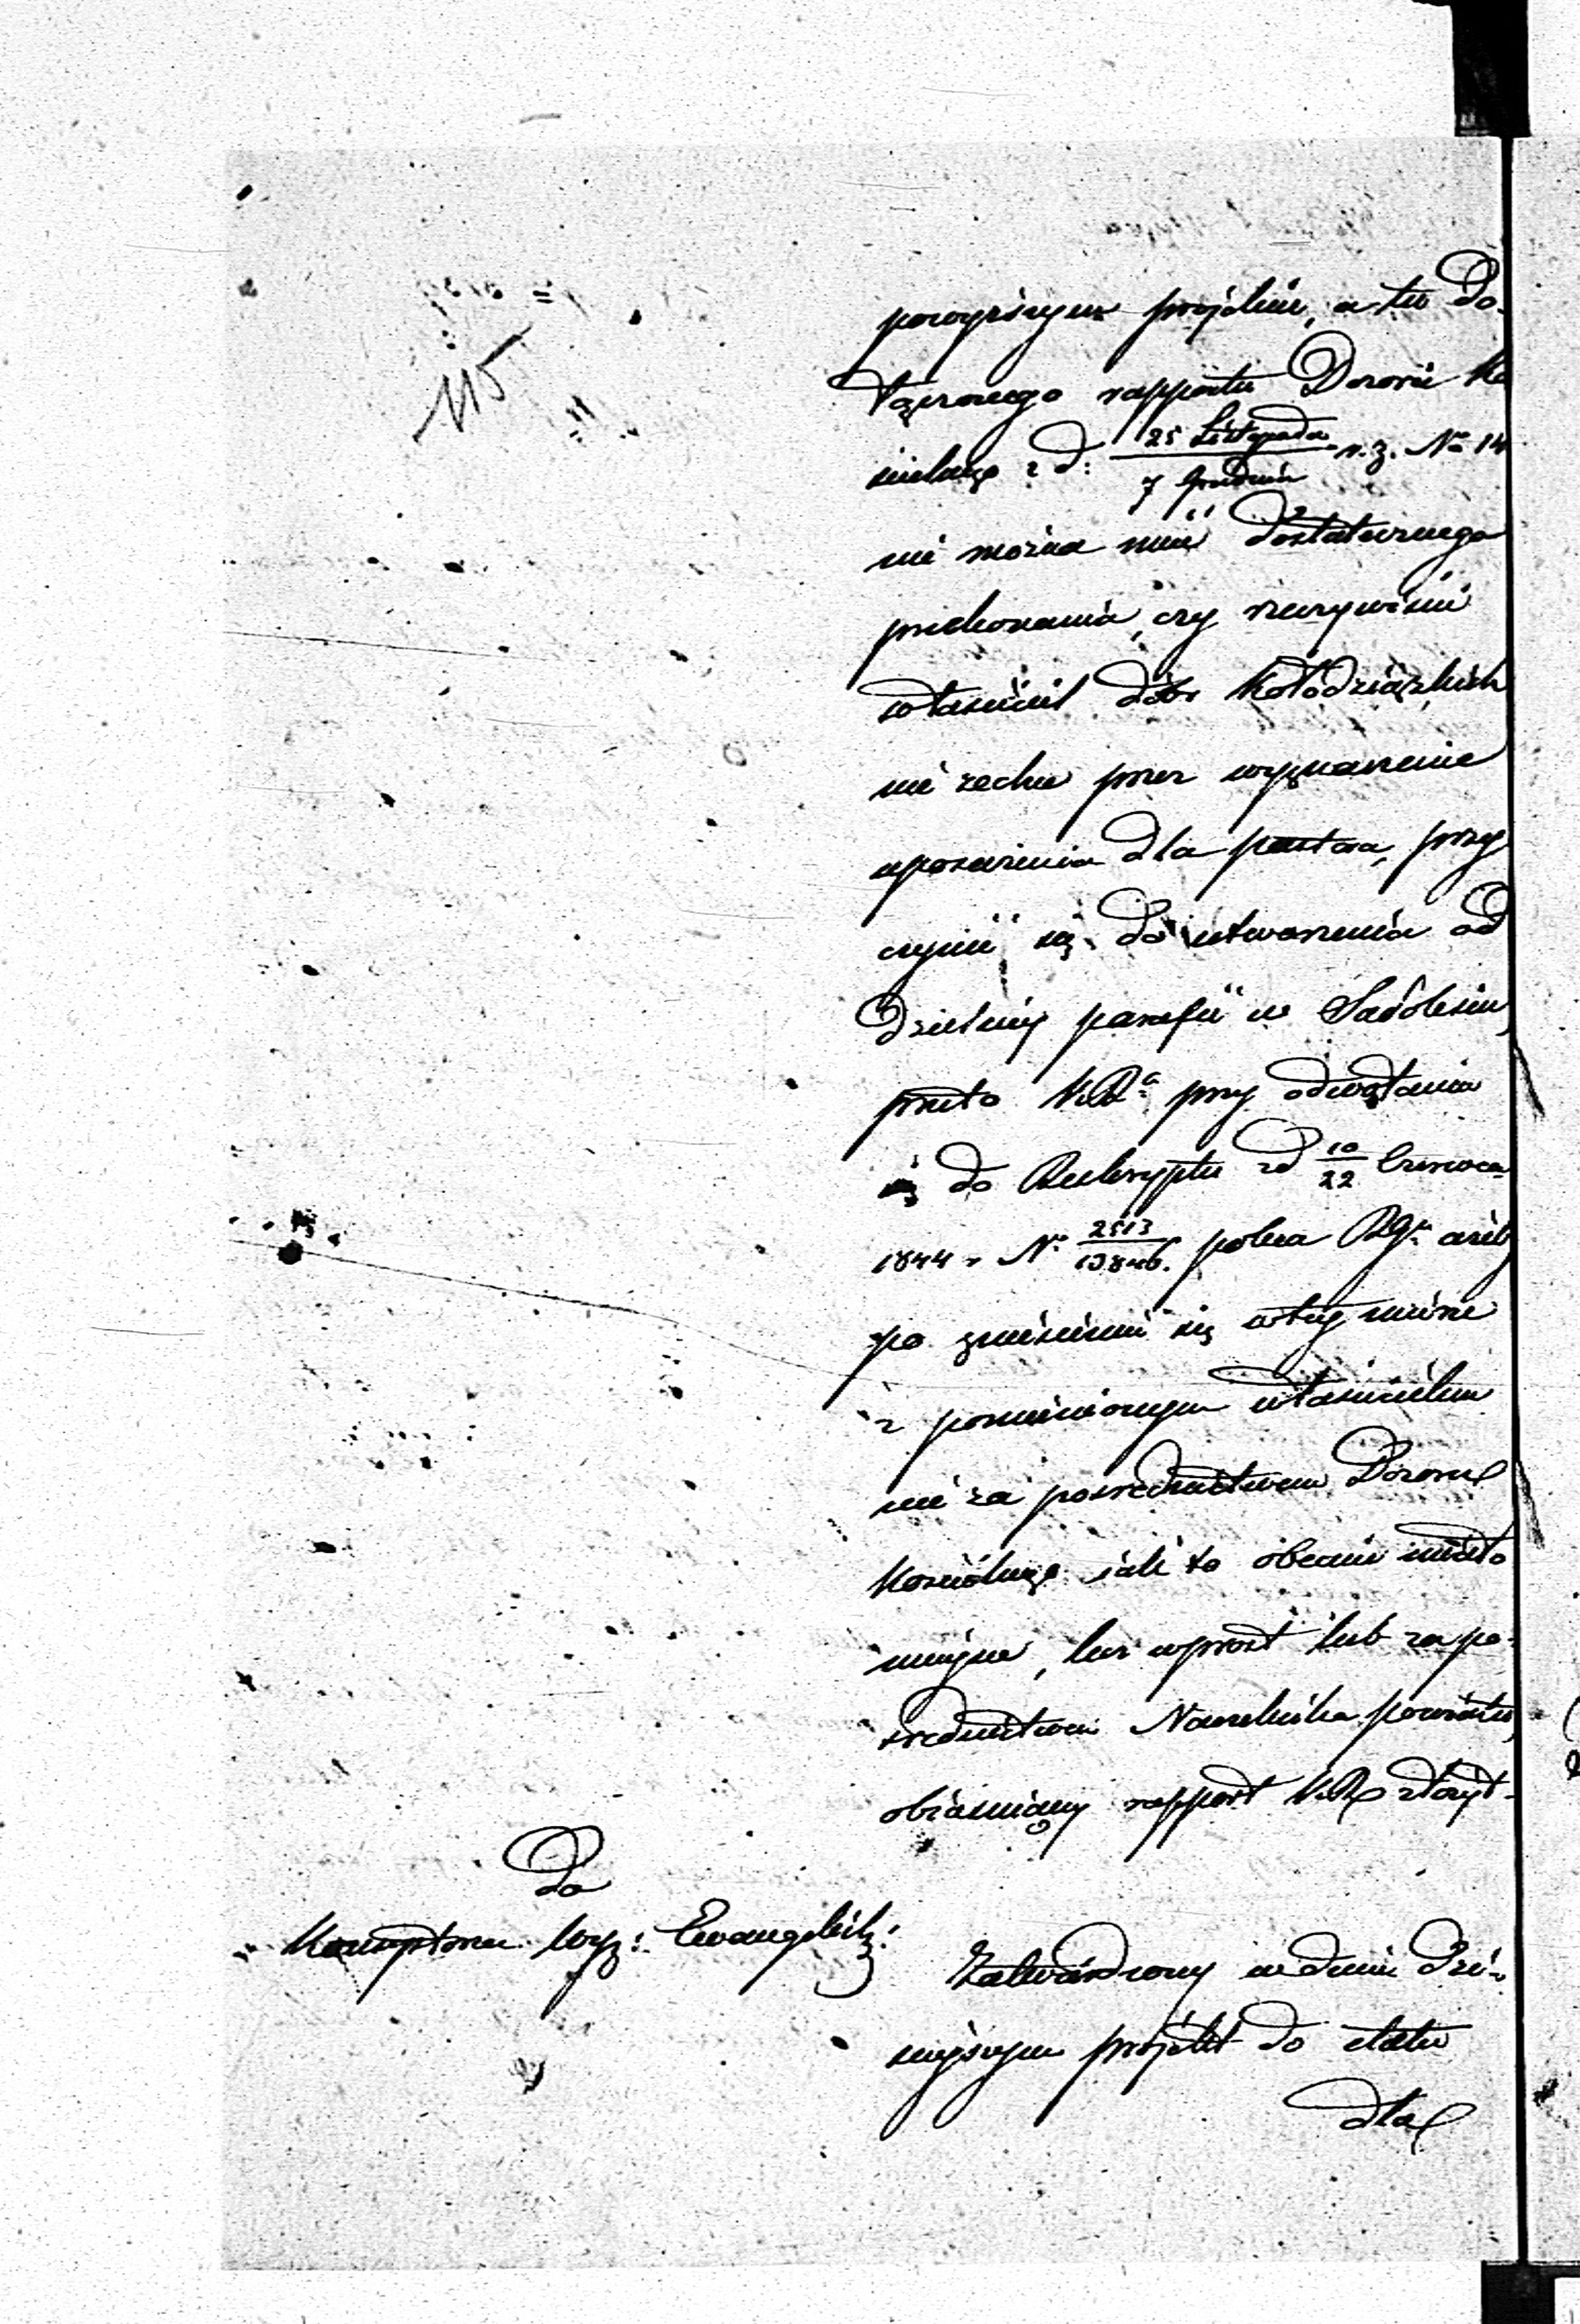 115
powyższym projekcie, a tu do-
łączonego rapportu Dozoru Ko
ścielnego z d: 25 Listopada / 7 Grudnia r. z. No 14
nie można mieć dostatecznego
przekonania, czy rzeczywiście
właściciel dóbr Kołodziążkich
nie zechce przez wyznaczenie
uposażenia dla pastora, przy
czynić się do utworzenia od
dzielnéj parafii w Sadolesiu,
przeto K.R. przy odwołaniu
się do Reskryptu z d 10/22 Czerwca
1844 r No 2513/13846. poleca RGu. ażeby
po zniesieniu się w téj mierze
z pomienionym właścicielem
nie za pośrednictwem Dozoru
Kościelnego jak to obecnie miało
miejsce, lecz wprost lub za po-
średnictwem Naczelnika powiatu,
objaśniający rapport K.R. złożył.
Do
Konsystorza Wyz: Ewangelick:
Zatwierdzony w dniu dzi-
siejszym projekt do etatu
dla